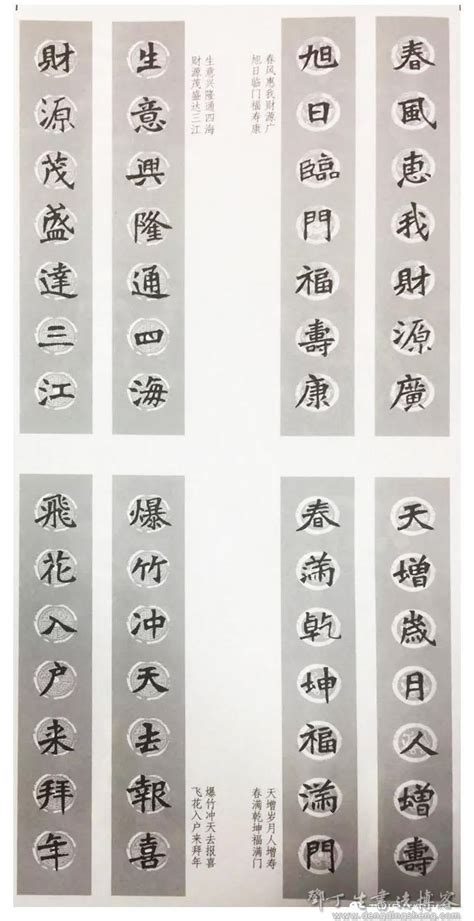 春風惠我財源廣
旭日臨門福壽康
春风惠我财源广
旭日临门福寿康
生意興隆通四海
財源茂盛達三江
生意兴隆通四海
财源茂盛达三江
天增歲月人增壽
春滿乾坤福滿門
天增岁月人增寿
春满乾坤福满门
爆竹冲天去報喜
飛花入户来拜年
爆竹冲天去报喜
飞花入户来拜年
邓丁生書法博客
www.dengdingsheng.com